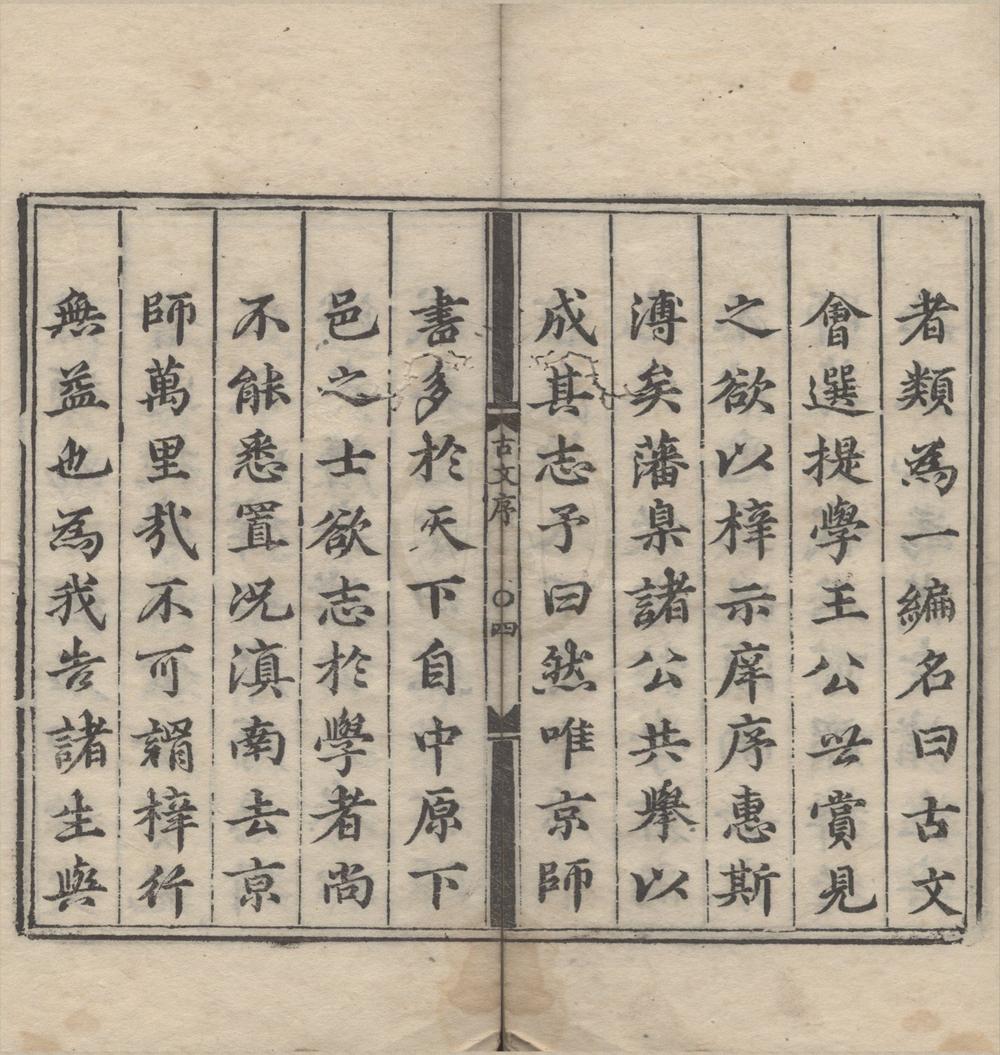 者類為一編名曰古文
會選提學王公㒷賞見
之欲以梓示庠序惠斯
溥矣藩臬諸公共擧以
成其志予曰然唯京師
古文序 〇四
書多於天下自中原下
邑之士欲志於學者尚
不能悉置况滇南去京
師萬里㢤不可謂梓行
無益也為我告諸生與